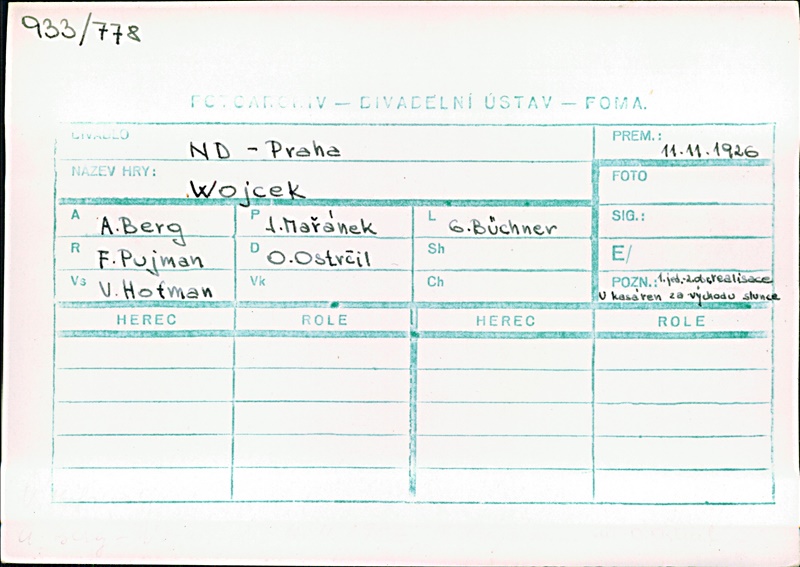 933/778
FOTOARCHIV — DIVADELNÍ ÚSTAV — FOMA.
DIVADLO ND - Praha
PREM.: 11.11.1926
NÁZEV HRY: Wojcek
FOTO
A A.Berg P J.Mařánek L G.Büchner
SIG.:
R F.Pujman D O.Ostrčil Sh
E/
Vs V.Hofman Vk Ch
POZN.: 1.jed. 2.ob. realisace
U kasáren za východu slunce
HEREC ROLE HEREC ROLE